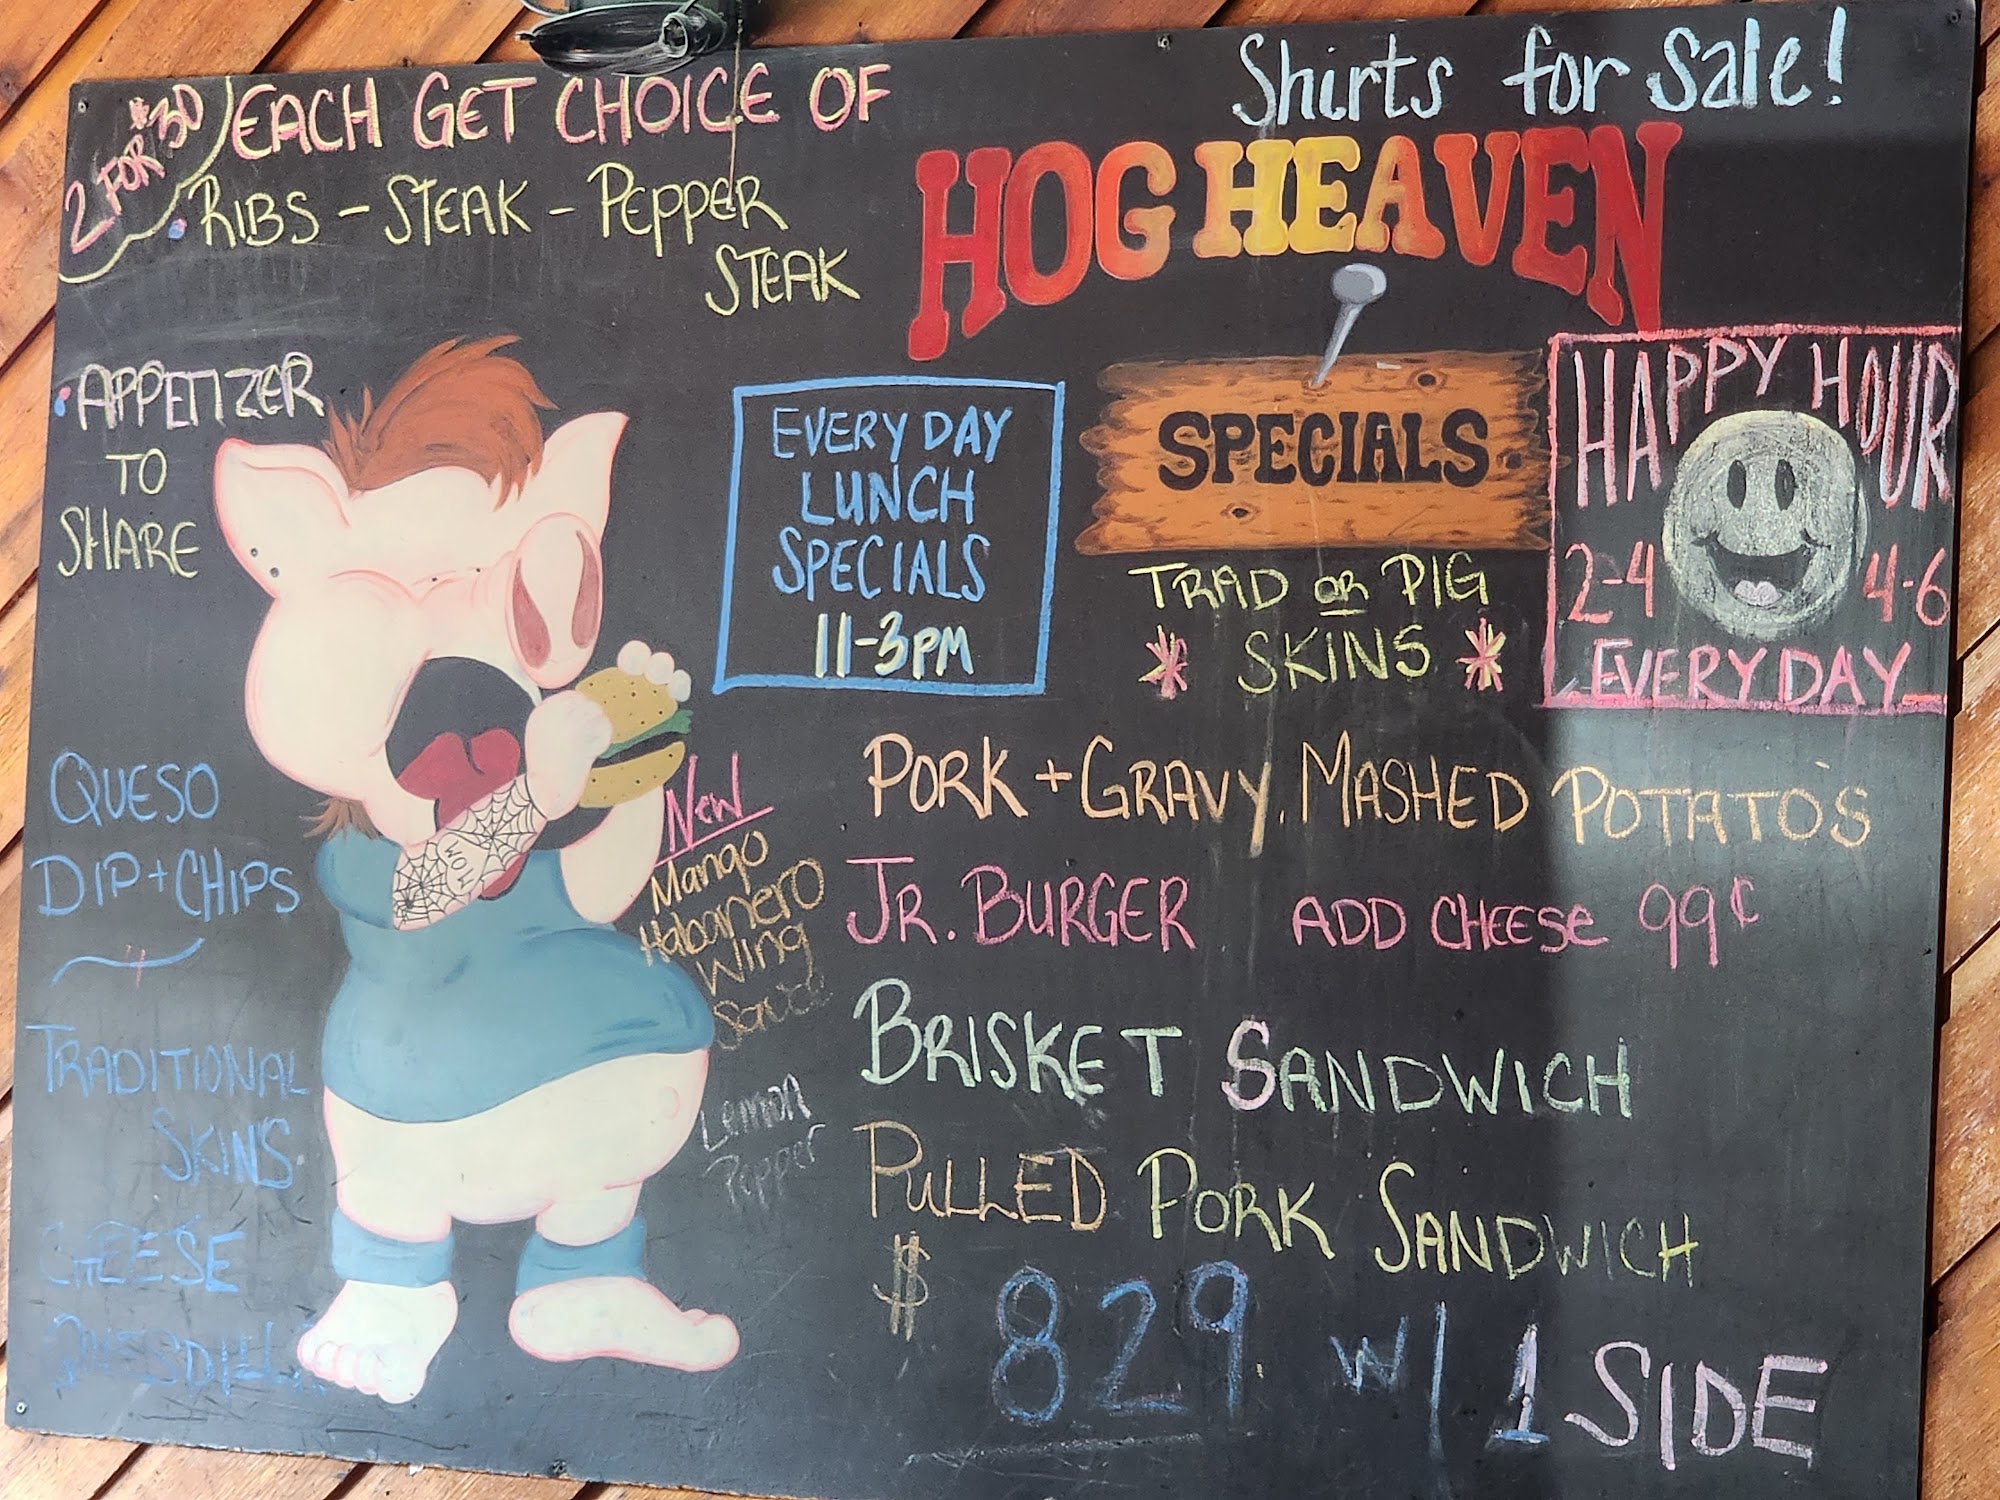 2 FOR $30
EACH GET CHOICE OF
RIBS - STEAK - PEPPER
STEAK
APPETIZER
TO
SHARE
QUESO
DIP + CHIPS
TRADITIONAL
SKINS
CHEESE
MOM
NEW
Mango
Habanero
Wing
Sauce
Lemon
Pepper
Shirts for Sale!
HOG HEAVEN
SPECIALS
EVERY DAY
LUNCH
SPECIALS
11-3PM
HAPPY HOUR
2-4 4-6
EVERY DAY
TRAD OR PIG
* SKINS *
PORK + GRAVY. MASHED POTATO'S
JR. BURGER ADD CHEESE 99¢
BRISKET SANDWICH
PULLED PORK SANDWICH
$ 829 W/ 1 SIDE